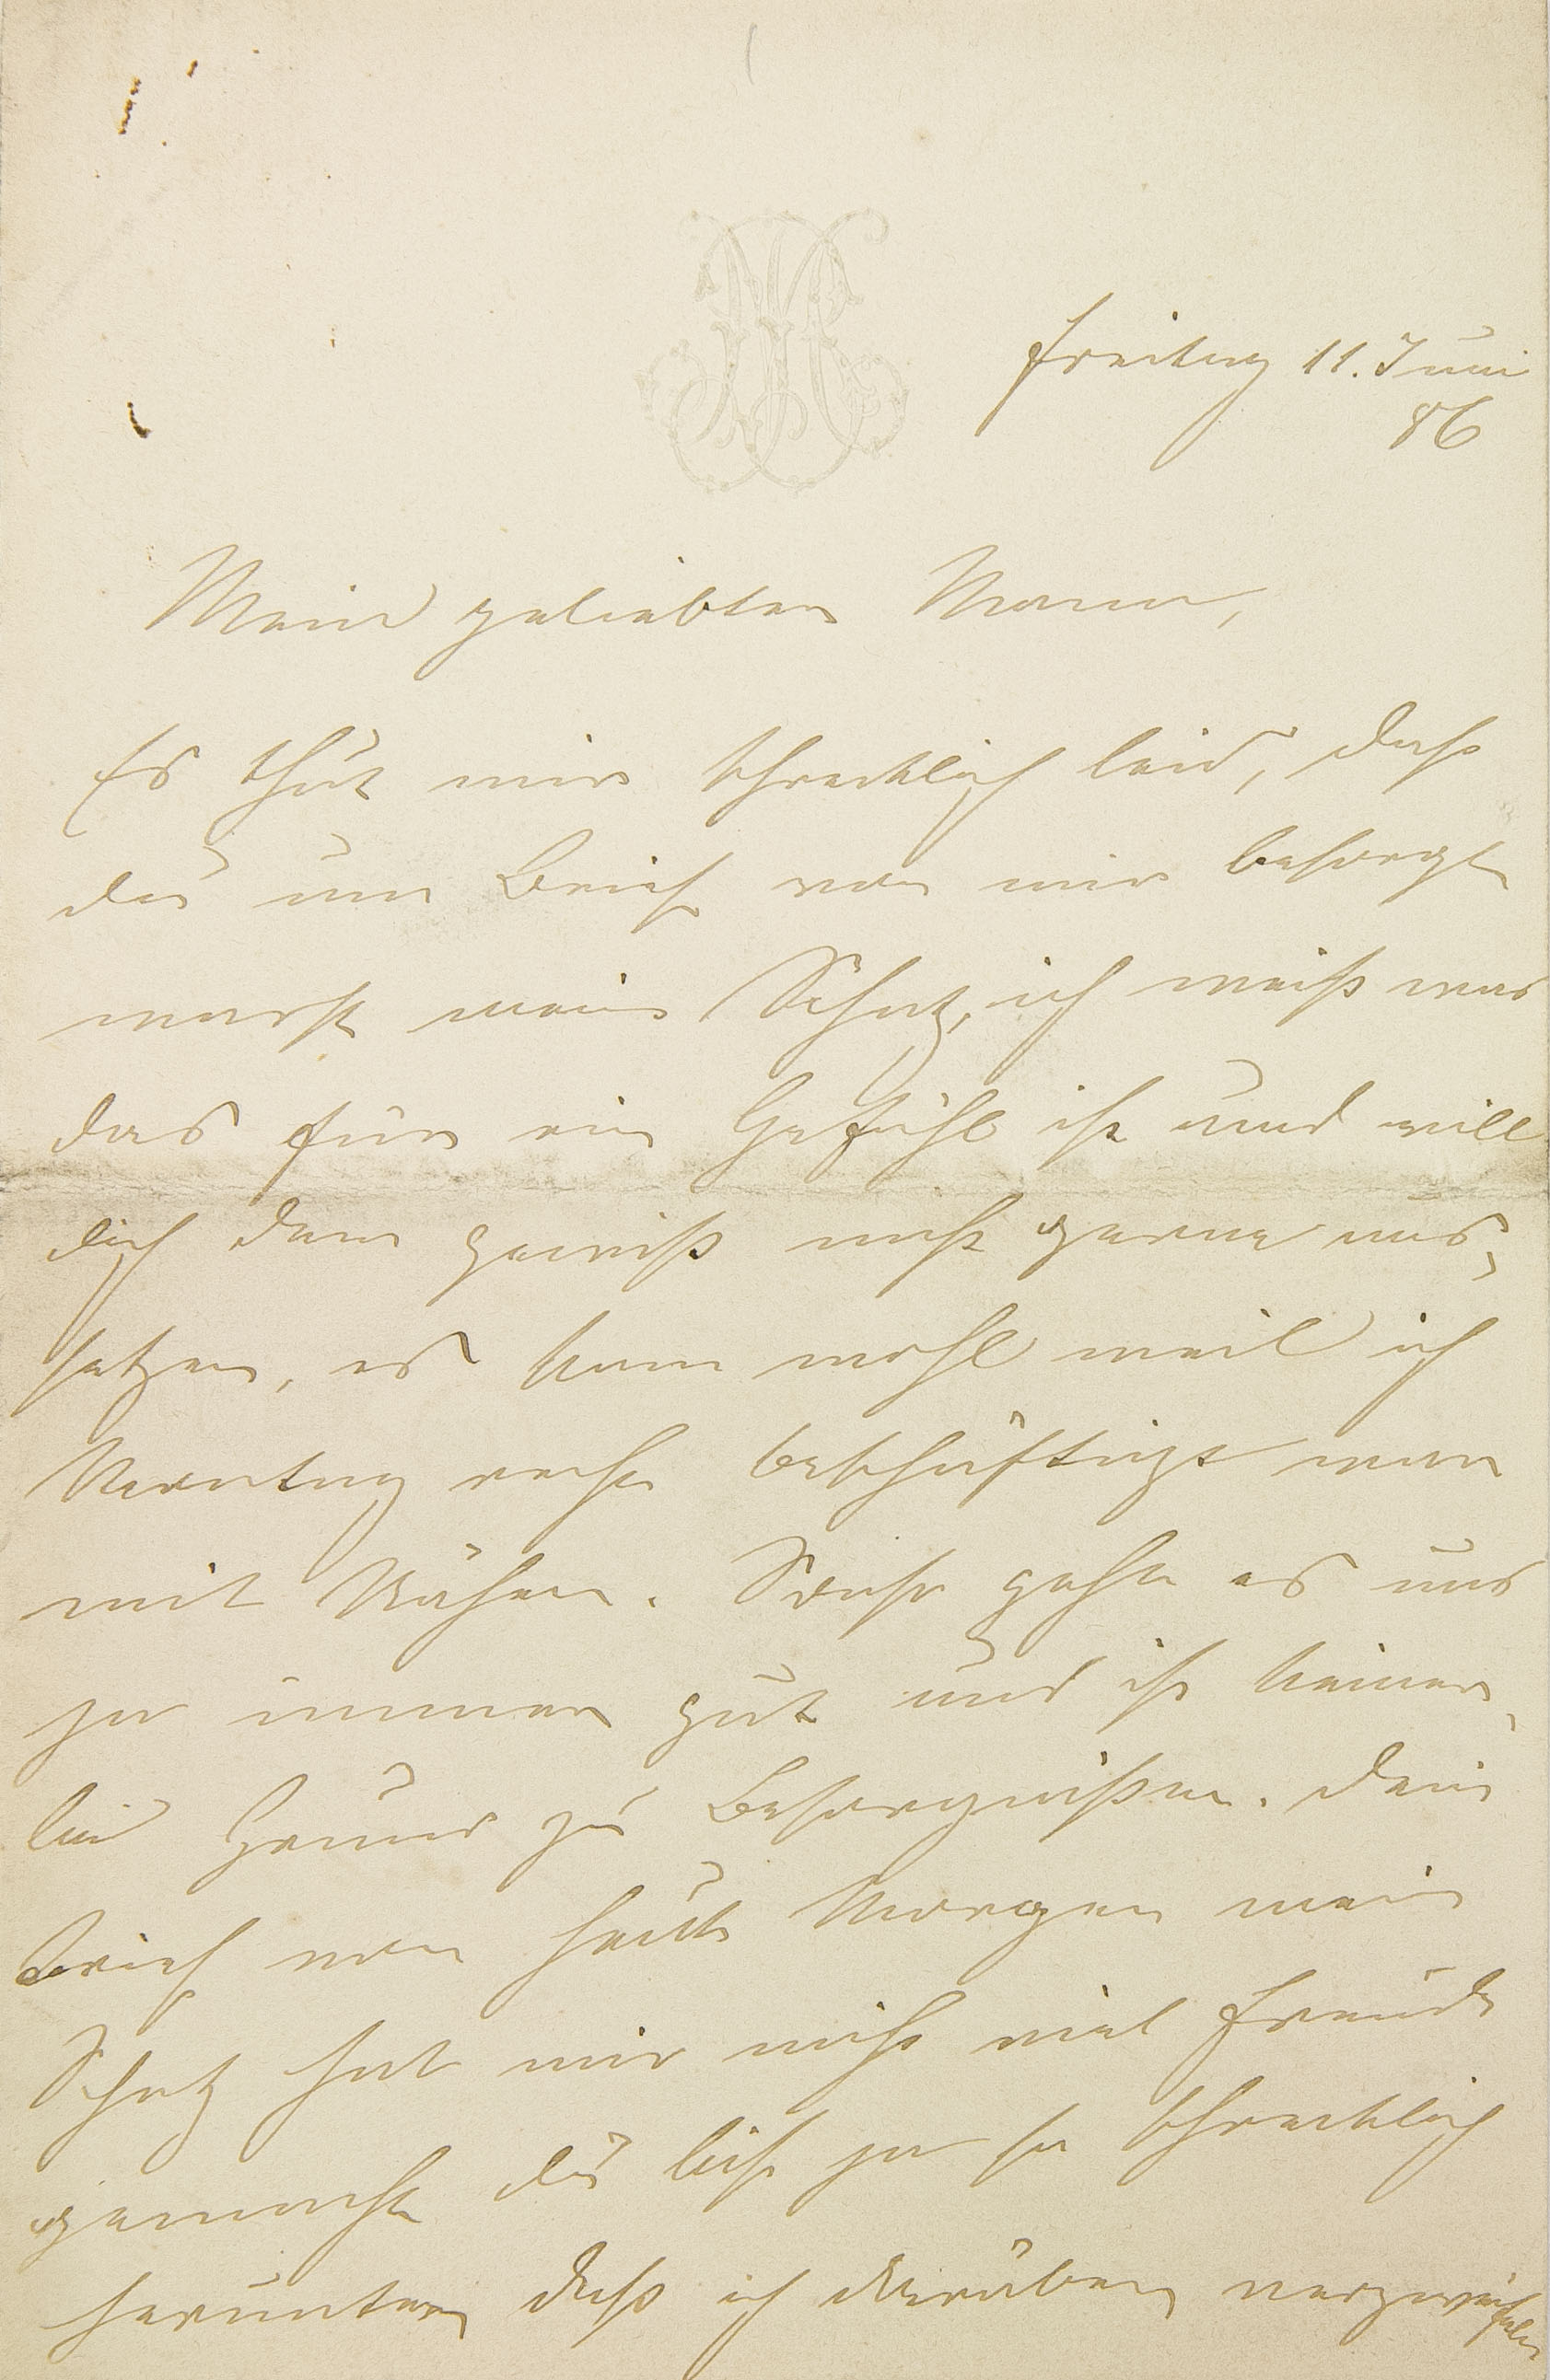 Freitag 11. Juni
86
Mein geliebter Mann,
Es thut mir schrecklich leid, daß
du um Brief von mir besorgt
warst mein Schatz, ich weiß was
das für ein Gefühl ist und will
dich dem gewiß nicht gerne aus-
setzen, es kam wohl weil ich
Montag recht beschäftigt war
mit Nähen. Sonst geht es uns
ja immer gut und ist keiner-
lei Grund zu Besorgnißen. Dein
Brief von heute Morgen mein
Schatz hat mir nicht viel Freude
gemacht du bist ja so schrecklich
herunter daß ich darüber verzweifeln